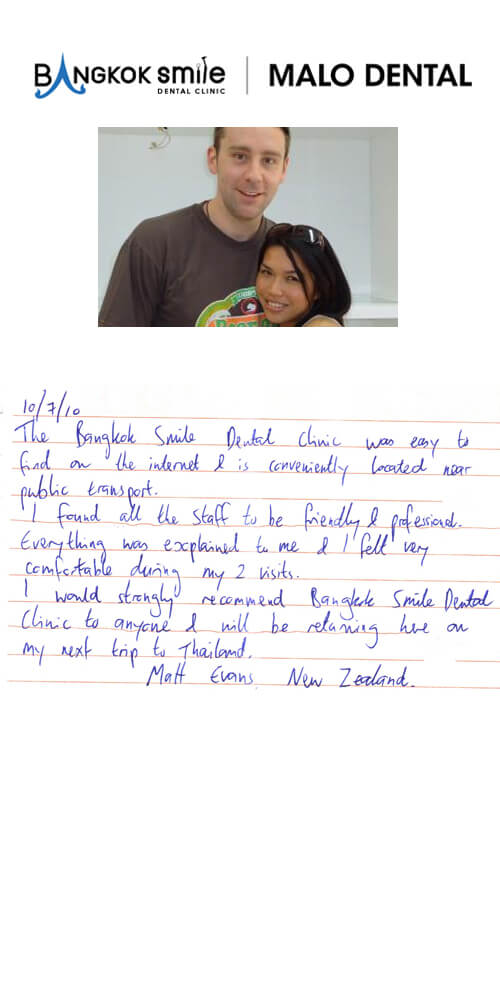 BANGKOK smile
DENTAL CLINIC
MALO DENTAL
10/7/10
The Bangkok Smile Dental Clinic was easy to
find on the internet & is conveniently located near
public transport.
I found all the staff to be friendly & professional.
Everything was explained to me & I felt very
comfortable during my 2 visits.
I would strongly recommend Bangkok Smile Dental
Clinic to anyone & will be returning here on
my next trip to Thailand.
Matt Evans New Zealand.